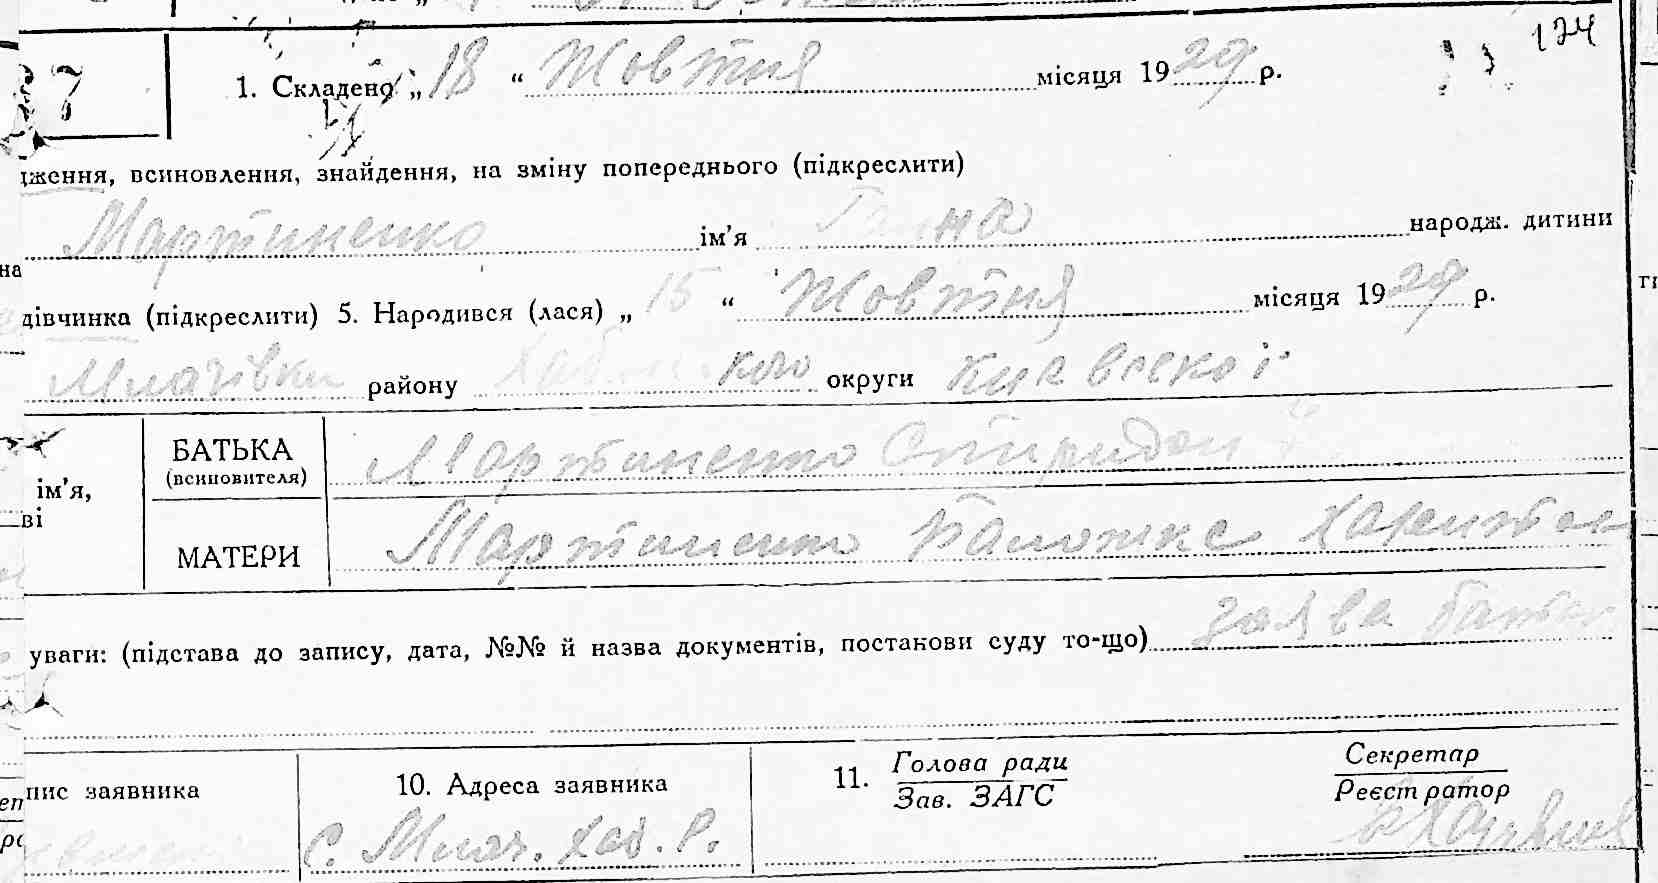 174
7 1. Складено „18“ Жовтня місяця 1929 р.
дження, всиновлення, знайдення, на зміну попереднього (підкреслити)
Мартиненко ім’я Ганна народж. дитини
на
дівчинка (підкреслити) 5. Народився (лася) „15“ Жовтня місяця 1929 р.
Милячівки району кого округи Київської
ім’я, БАТЬКА (всиновителя) Мартиненко Спиридон
ві МАТЕРИ Мартиненко
уваги: (підстава до запису, дата, №№ й назва документів, постанови суду то-що) заява батька
пис заявника 10. Адреса заявника 11. Голова ради Секретар
Зав. ЗАГС Реєстратор
с. Мляч. Хаб. Р.